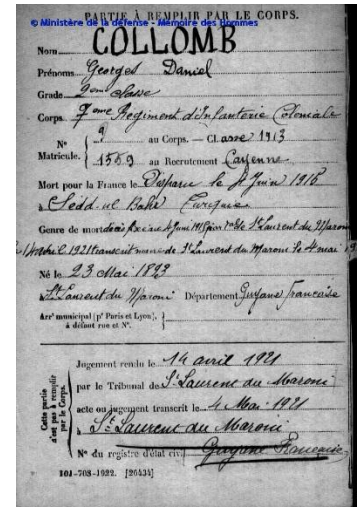 PARTIE À REMPLIR PAR LE CORPS.
© Ministère de la défense - Mémoire des Hommes
Nom COLLOMB
Prénoms Georges Daniel
Grade 2eme Classe
Corps 7eme Régiment d'Infanterie Coloniale
N° Matricule. { 9 au Corps. — Classe 1913
1559 au Recrutement Cayenne
Mort pour la France le Disparu le 4 Juin 1915
à Sedd-ul Bahr Turquie
Genre de mort décès fixé au 4 Juin 1915 par de St Laurent du Maroni
14 avril 1921 transcrit St Laurent du Maroni le 4 mai
Né le 23 Mai 1893
St Laurent du Maroni Département Guyane française
Arrt municipal (pr Paris et Lyon), à défaut rue et N°. {
Cette partie n'est pas à remplir par le Corps.
Jugement rendu le 14 avril 1921
par le Tribunal de St Laurent du Maroni
acte ou jugement transcrit le 4 Mai 1921
à St Laurent du Maroni
N° du registre d'état civil Guyane Française
101-708-1922. [26434]